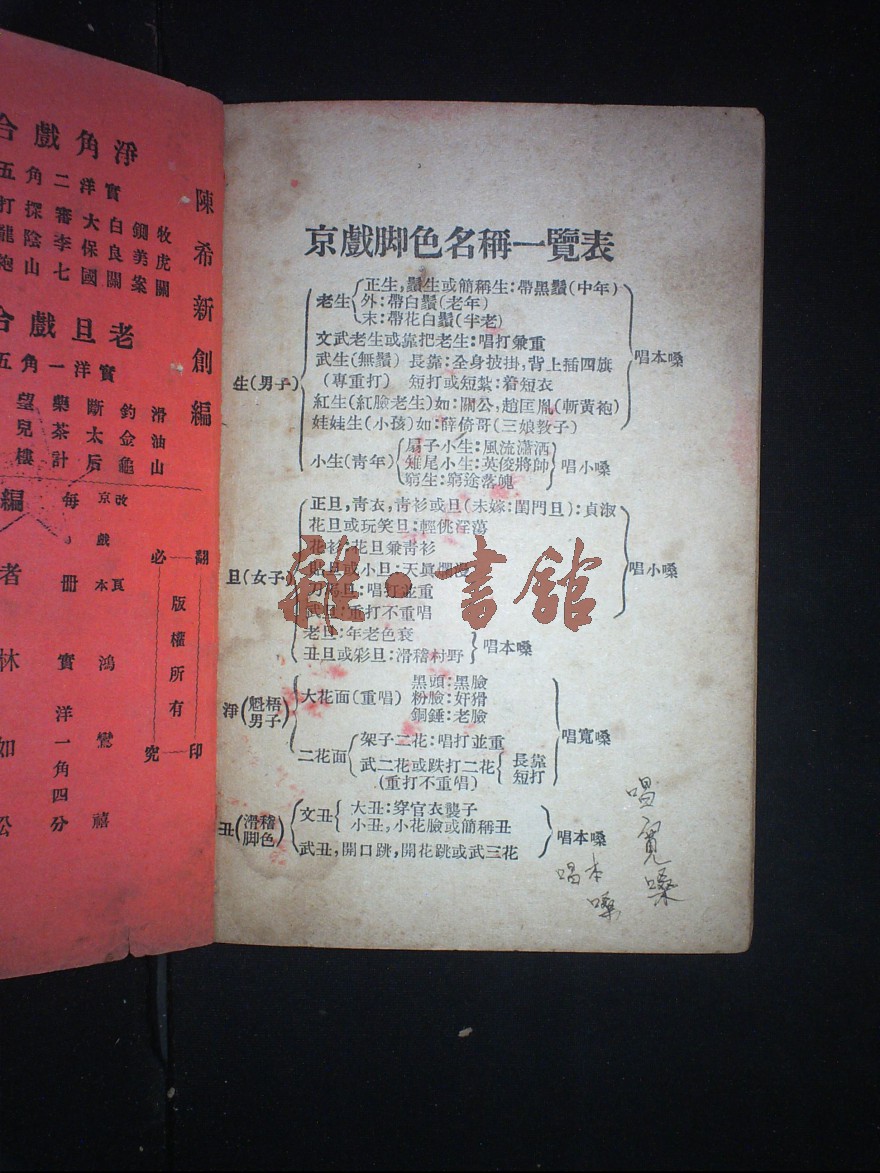 京戲脚色名稱一覽表
生(男子)
老生
正生,鬚生或簡稱生:帶黑鬚(中年)
外:帶白鬚(老年)
末:帶花白鬚(半老)
文武老生或靠把老生:唱打兼重
武生(無鬚)長靠:全身披掛,背上插四旗
(專重打) 短打或短紮:着短衣
紅生(紅臉老生)如:關公,趙匡胤(斬黃袍)
娃娃生(小孩)如:薛倚哥(三娘敎子)
唱本嗓
小生(靑年)
扇子小生:風流瀟洒
雉尾小生:英俊將帥
窮生:窮途落魄
唱小嗓
旦(女子)
正旦,靑衣,靑衫或旦(未嫁:閨門旦):貞淑
花旦或玩笑旦:輕佻淫蕩
花衫:花旦兼靑衫
貼旦或小旦:天眞爛漫
刀馬旦:唱打並重
武旦:重打不重唱
唱小嗓
老旦:年老色衰
丑旦或彩旦:滑稽村野
唱本嗓
淨(魁梧男子)
大花面(重唱)
黑頭:黑臉
粉臉:奸猾
銅錘:老臉
二花面
架子二花:唱打並重
武二花或跌打二花
長靠
短打
(重打不重唱)
唱寬嗓
丑(滑稽脚色)
文丑
大丑:穿官衣襲子
小丑,小花臉或簡稱丑
武丑,開口跳,開花跳或武三花
唱本嗓
唱寬嗓
唱本嗓
雜·書館
陳希新創編
淨角戲合
實洋二角五
牧虎關
鍘美案
白良關
大保國
審李七
探陰山
打龍袍
老旦戲合
實洋一角五
滑油山
釣金龜
斷太后
藥茶計
望兒樓
改良
京戲本
鴻鸞禧
每冊實洋一角四分
編者林如松
版權所有
翻印必究